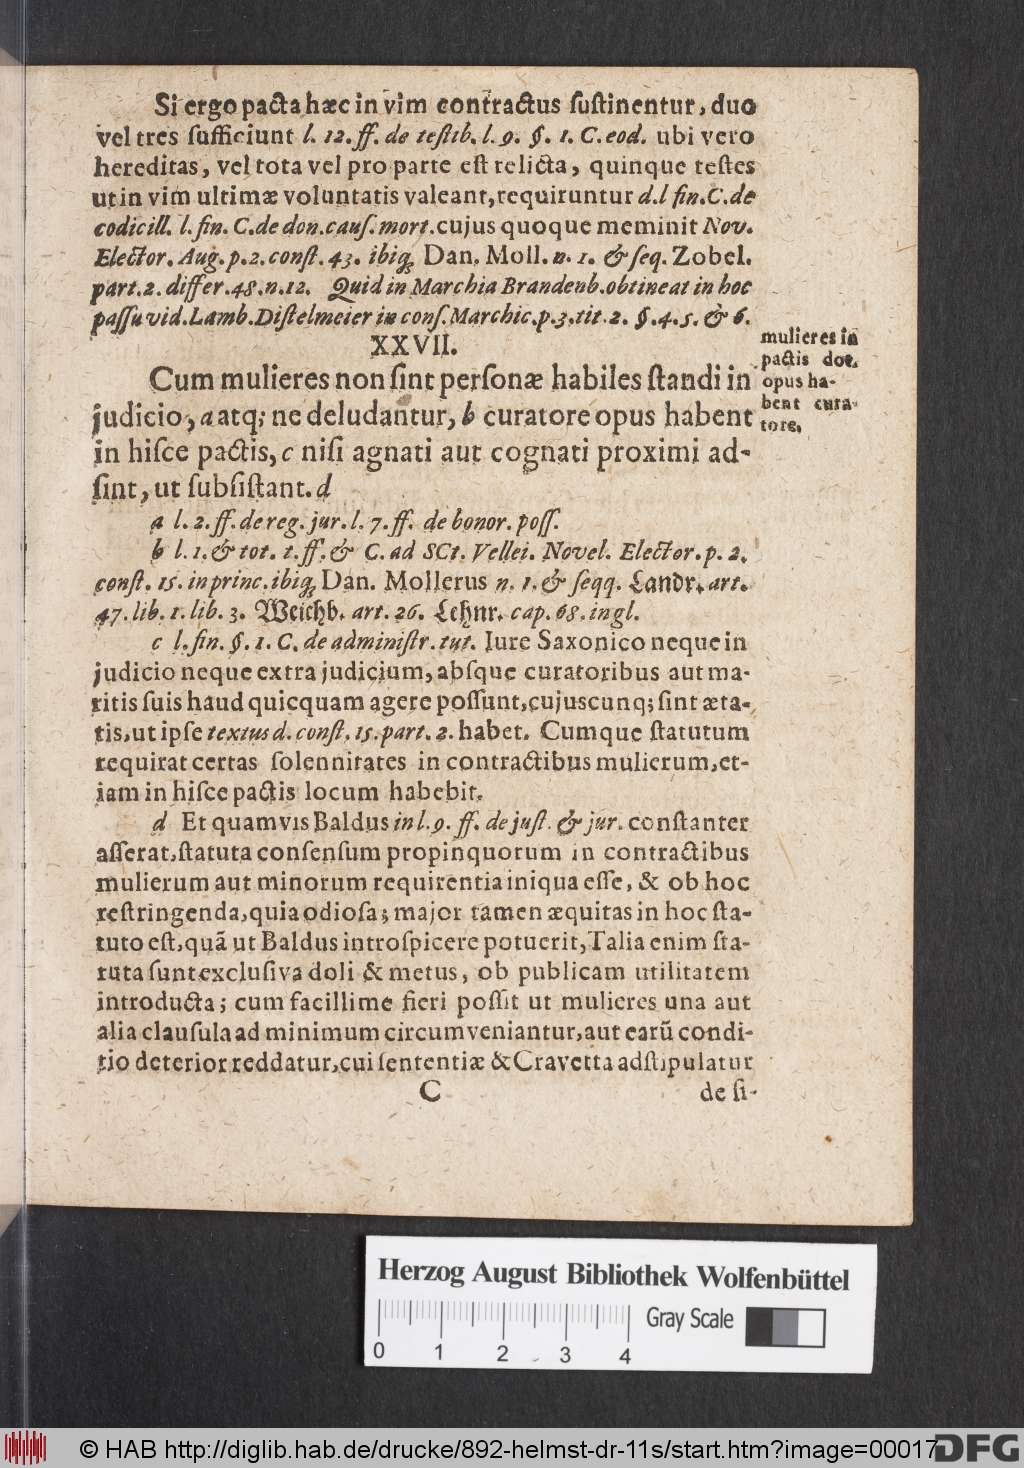 Si ergo pacta hæc in vim contractus ſuſtinentur, duo
vel tres ſufficiunt l. 12. ff. de teſtib. l. 9. §. 1. C. eod. ubi vero
hereditas, vel tota vel pro parte eſt relicta, quinque teſtes
ut in vim ultimæ voluntatis valeant, requiruntur d. l fin. C. de
codicill. l. fin. C. de don. cauſ. mort. cujus quoque meminit Nov.
Elector. Aug. p. 2. conſt. 43. ibiq; Dan. Moll. n. 1. & ſeq. Zobel.
part. 2. differ. 48. n. 12. Quid in Marchia Brandenb. obtineat in hoc
paſſu vid. Lamb. Diſtelmeier in conſ. Marchic. p. 3. tit. 2. §. 4. 5. & 6.
XXVII.
mulieres in
pactis dot.
opus ha-
bent cura-
tore.
Cum mulieres non ſint perſonæ habiles ſtandi in
judicio, a atq; ne deludantur, b curatore opus habent
in hiſce pactis, c niſi agnati aut cognati proximi ad-
ſint, ut ſubſiſtant. d
a l. 2. ff. de reg. jur. l. 7. ff. de bonor. poſſ.
b l. 1. & tot. t. ff. & C. ad SCt. Vellei. Novel. Elector. p. 2.
conſt. 15. in princ. ibiq; Dan. Mollerus n. 1. & ſeqq. Landr. art.
47. lib. 1. lib. 3. Weichb. art. 26. Lehnr. cap. 68. ingl.
c l. fin. §. 1. C. de adminiſtr. tut. Iure Saxonico neque in
judicio neque extra judicium, abſque curatoribus aut ma-
ritis ſuis haud quicquam agere poſſunt, cujuscunq; ſint æta-
tis, ut ipſe textus d. conſt. 15. part. 2. habet. Cumque ſtatutum
requirat certas ſolennitates in contractibus mulierum, et-
iam in hiſce pactis locum habebit.
d Et quamvis Baldus in l. 9. ff. de juſt. & jur. conſtanter
aſſerat, ſtatuta conſenſum propinquorum in contractibus
mulierum aut minorum requirentia iniqua eſſe, & ob hoc
reſtringenda, quia odioſa; major tamen æquitas in hoc ſta-
tuto eſt, quã ut Baldus introſpicere potuerit, Talia enim ſta-
tuta ſunt excluſiva doli & metus, ob publicam utilitatem
introducta; cum facillime fieri poſſit ut mulieres una aut
alia clauſula ad minimum circumveniantur, aut earũ condi-
tio deterior reddatur, cui ſententiæ & Cravetta adſtipulatur
C de ſi-
Herzog August Bibliothek Wolfenbüttel
Gray Scale
0 1 2 3 4
© HAB http://diglib.hab.de/drucke/892-helmst-dr-11s/start.htm?image=00017
DFG